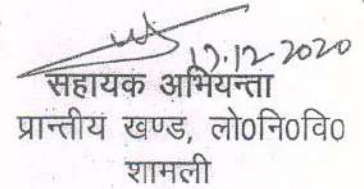 17.12.2020
सहायक अभियन्ता
प्रान्तीय खण्ड, लो०नि०वि०
शामली